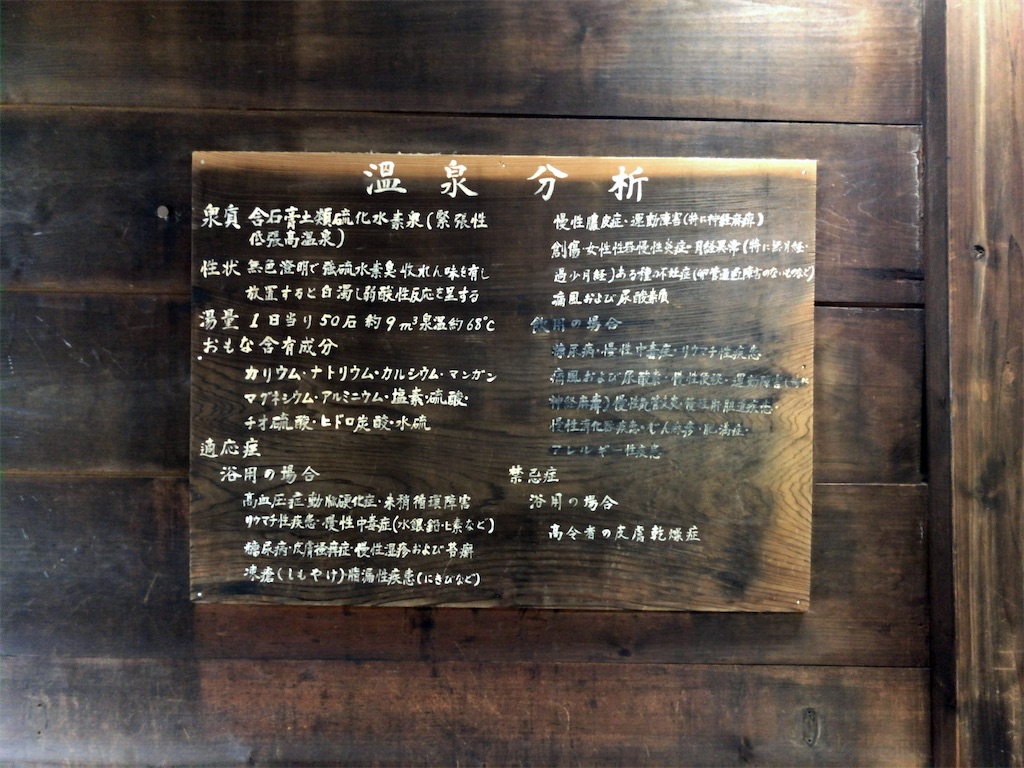 温泉分析
泉質 含石膏土類硫化水素泉(緊張性
低張高温泉)
性状 無色澄明で強硫水素臭収れん味を有し
放置すると白濁し弱酸性反応を呈する
湯量 1日当り50石約9m³泉温約68°C
おもな含有成分
カリウム・ナトリウム・カルシウム・マンガン
マグネシウム・アルミニウム・塩素・硫酸・
チオ硫酸・ヒドロ炭酸・水硫
適応症
浴用の場合
高血圧症・動脈硬化症・末梢循環障害
リウマチ性疾患・慢性中毒症(水銀・鉛・ヒ素など)
糖尿病・皮膚掻痒症・慢性湿疹および苔癬
凍瘡(しもやけ)・脂漏性疾患(にきびなど)
慢性膿皮症・運動障害(特に神経麻痺)
創傷・女性性器慢性炎症・月経異常(特に無月経・
過少月経)ある種の不妊症(卵管通過障害のないものなど)
痛風および尿酸素質
飲用の場合
糖尿病・慢性中毒症・リウマチ性疾患
痛風および尿酸素・慢性・運動障害(特に
神経麻痺)慢性気管支炎・慢性肝胆道疾患・
慢性消化器疾患・じん麻疹・肥満症・
アレルギー性疾患
禁忌症
浴用の場合
高令者の皮膚乾燥症